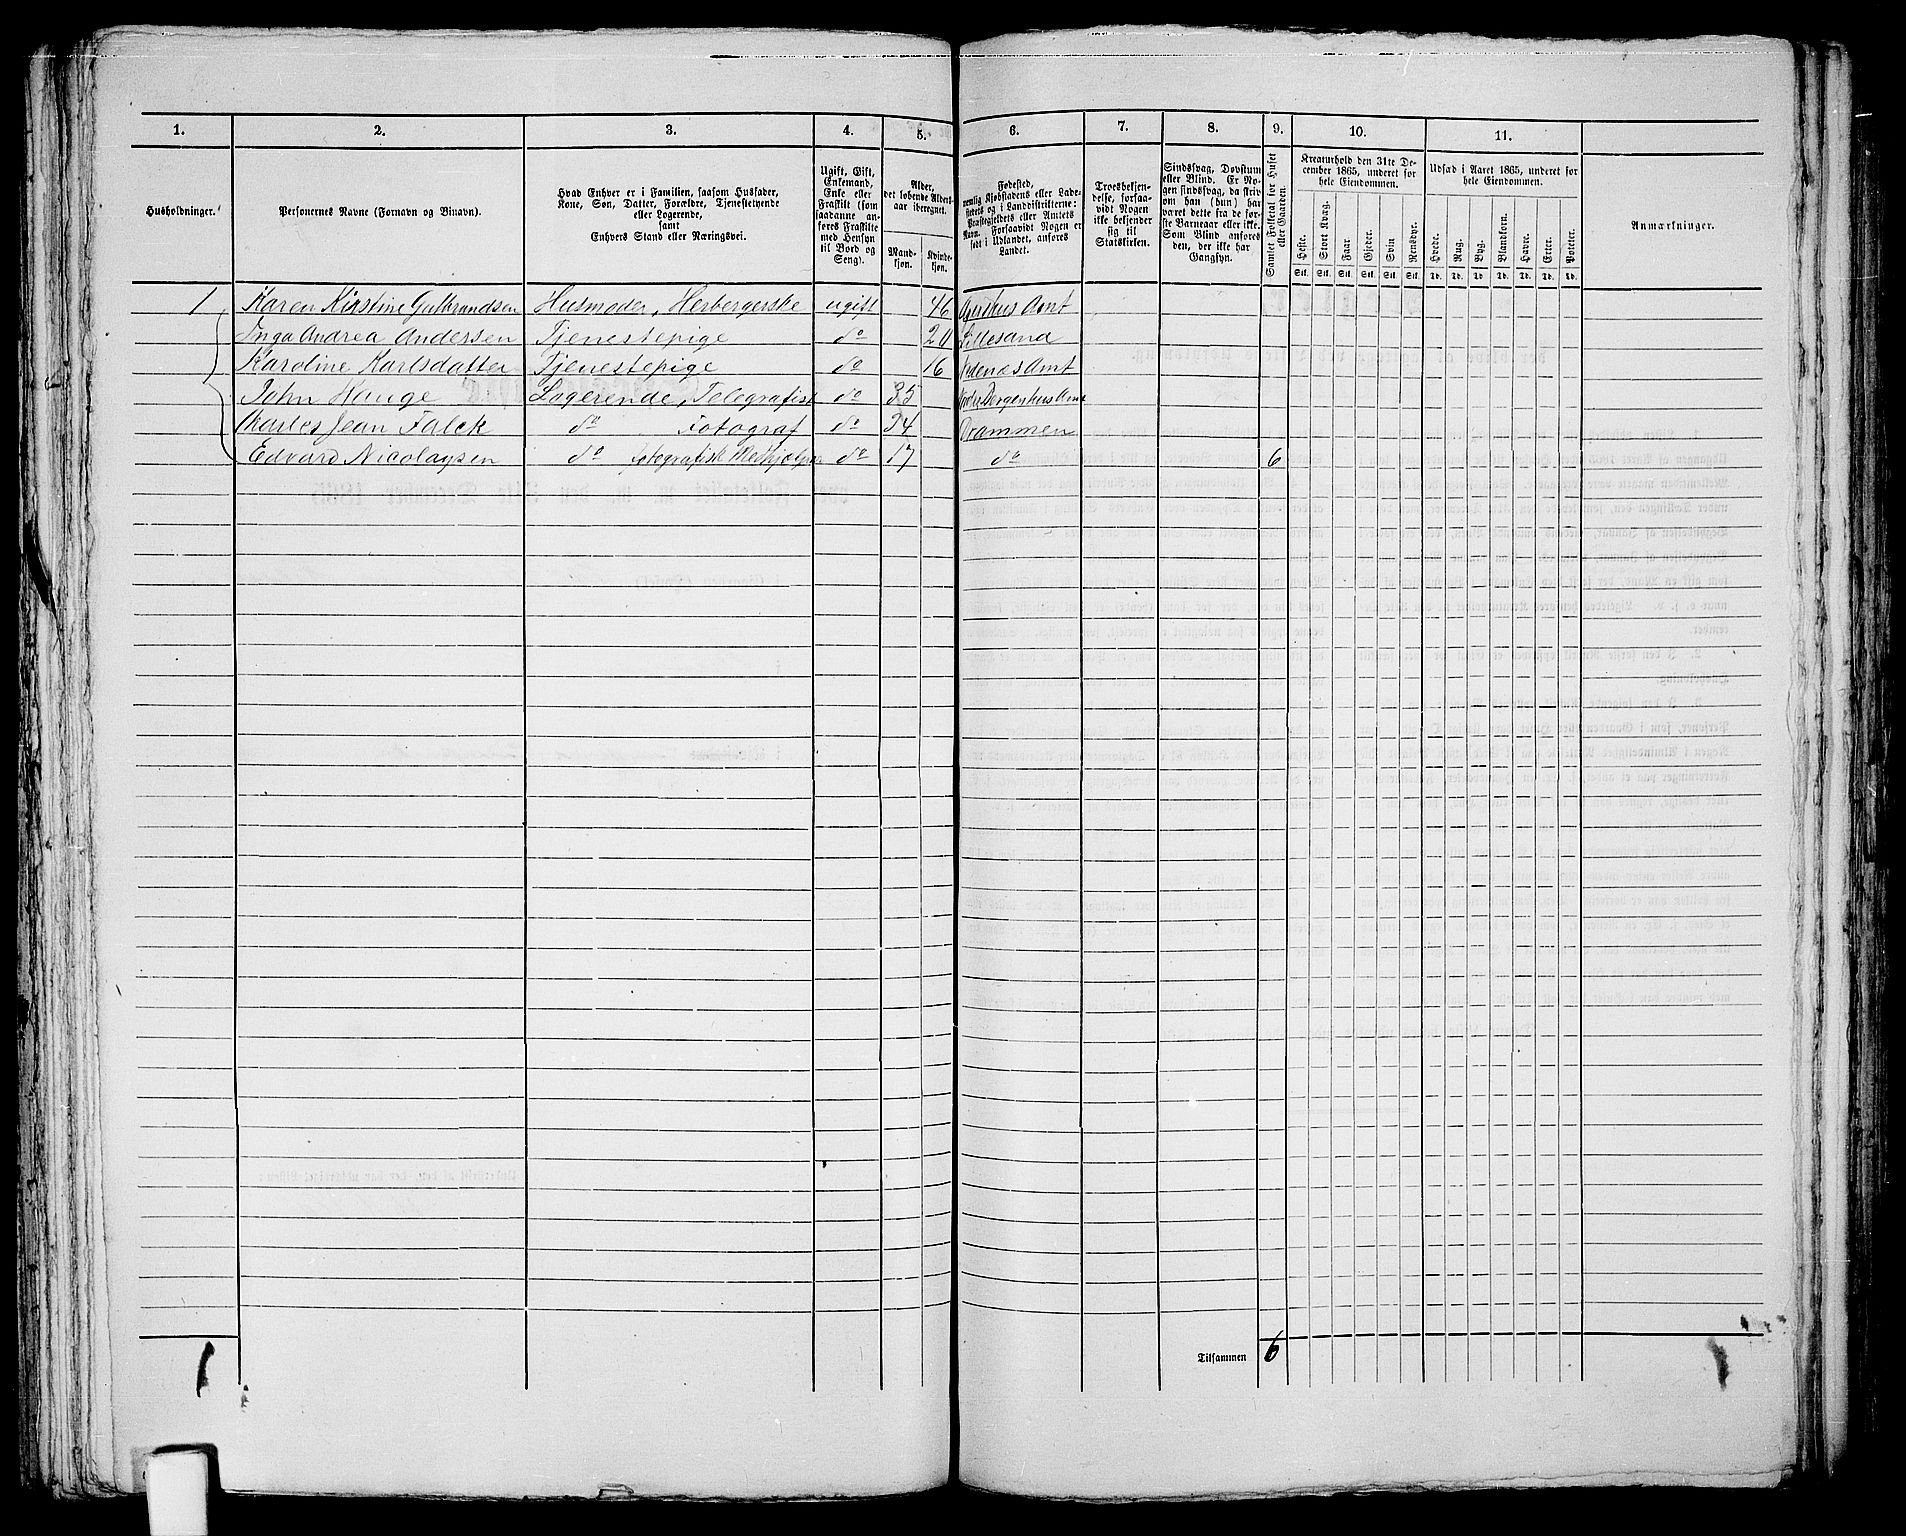 1. 2. 3. 4. 5. 6. 7. 8. 9. 10. 11.
Husholdninger.
Personernes Navne (Fornavn og Binavn).
Hvad Enhver er i Familien, saasom Husfader,
Kone, Søn, Datter, Forældre, Tjenestetyende
eller Logerende,
samt
Enhvers Stand eller Næringsvei.
Ugift, Gift,
Enkemand,
Enke eller
Fraskilt (som
saadanne an-
føres Fraskilte
med Hensyn
til Bord og
Seng).
Alder,
det løbende Alders-
aar iberegnet.
Mand-
kjøn.
Kvinde-
kjøn.
Fødested,
nemlig Kjøbstadens eller Lade-
stedets og i Landdistrikterne:
Præstegjeldets eller Amtets
Navn. Forsaavidt Nogen er
født i Udlandet, anføres
Landet.
Troesbekjen-
delse, forsaa-
vidt Nogen
ikke bekjender
sig til
Statskirken.
Sindssvag, Døvstum
eller Blind. Er No-
gen sindssvag, da skriv
om han (hun) har
været dette fra de før-
ste Barneaar eller ikke.
Som Blind anføres
den, der ikke har
Gangsyn.
Samlet Folketal for Huset
eller Gaarden.
Kreaturhold den 31te De-
cember 1865, underet for
hele Eiendommen.
Heste. Stort Kvæg. Faar. Gjeder. Svin Rensdyr.
Stk. Stk. Stk. Stk. Stk. Stk.
Udsæd i Aaret 1865, underet for
hele Eiendommen.
Hvede. Rug. Byg. Blandkorn. Havre. Erter. Poteter.
Td. Td. Td. Td. Td. Td. Td.
Anmærkninger.
1 Karen Kirstine Gulbrandsen Husmoder, Herbergerske ugift 46 Agershus Amt
Inga Andrea Andersen Tjenestepige do 20 Lillesand
Karoline Karlsdatter Tjenestepige do 16 Nedenæs Amt
John Hauge Logerende, Telegrafist do 35 Søndre Bergenhus Amt
Charles Jean Falck do Fotograf do 34 Drammen
Edvard Nicolaysen do fotografisk Medhjælper do 17 do 6
Tilsammen 6